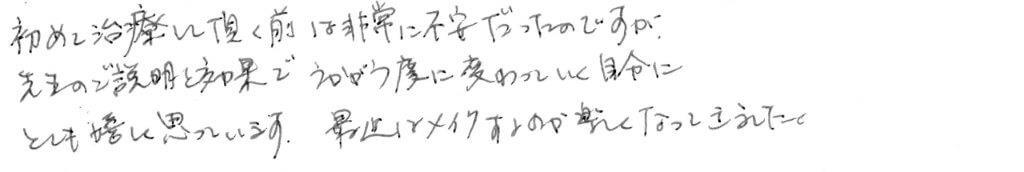 初めて治療して頂く前は非常に不安だったのですが、
先生のご説明と効果で うかがう度に変わっていく自分に
とても嬉しく思っています。 最近はメイクするのが楽しくなってきました。